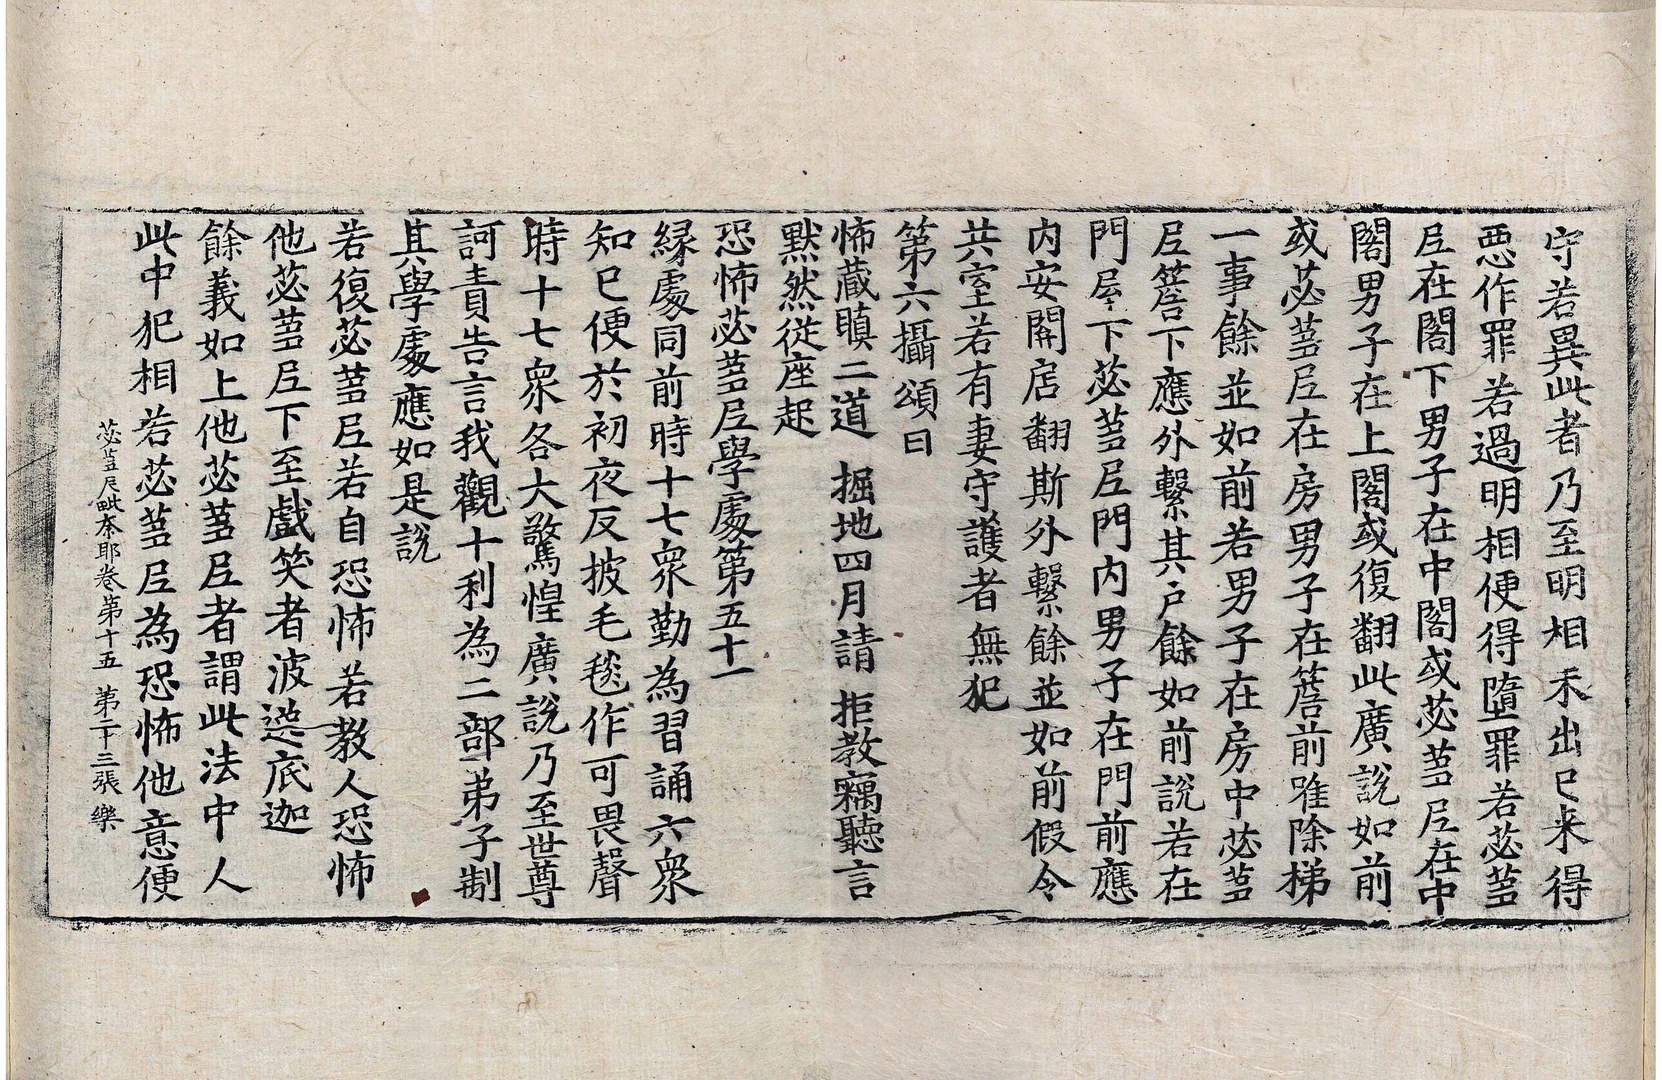 守若異此者乃至明相未出已来得
惡作罪若過明相便得墮罪若苾蒭
尼在閣下男子在中閣或苾蒭尼在中
閣男子在上閣或復翻此廣說如前
或苾蒭尼在房男子在簷前唯除梯
一事餘並如前若男子在房中苾蒭
尼簷下應外繫其戶餘如前說若在
門屋下苾蒭尼門內男子在門前應
內安關扂翻斯外繫餘並如前假令
共室若有妻守護者無犯
第六攝頌曰
怖藏瞋二道 掘地四月請 拒教竊聽言
默然從座起
恐怖苾蒭尼學處第五十一
緣處同前時十七衆勤為習誦六衆
知已便於初夜反披毛毯作可畏聲
時十七衆各大驚惶廣說乃至世尊
訶責告言我觀十利為二部弟子制
其學處應如是說
若復苾蒭尼若自恐怖若教人恐怖
他苾蒭尼下至戲笑者波逸底迦
餘義如上他苾蒭尼者謂此法中人
此中犯相若苾蒭尼為恐怖他意便
苾蒭尼毗奈耶卷第十五 第二十三張 樂